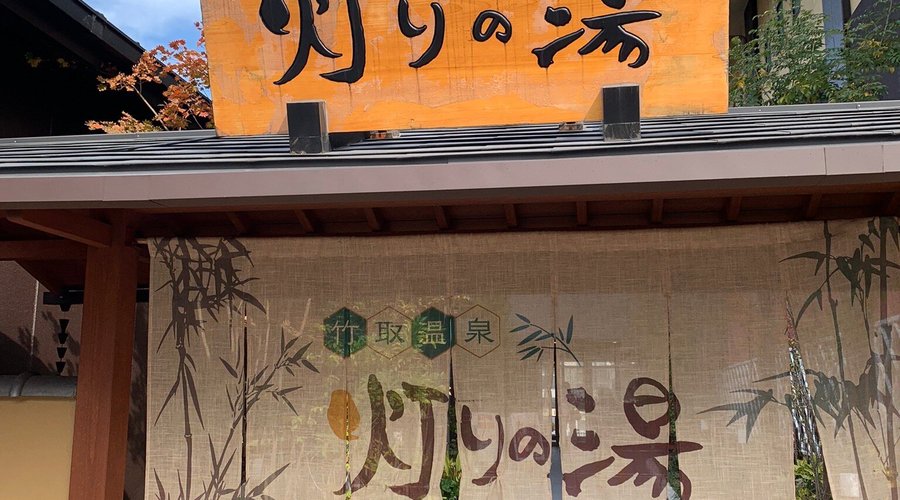 灯りの湯
竹取温泉
灯りの湯